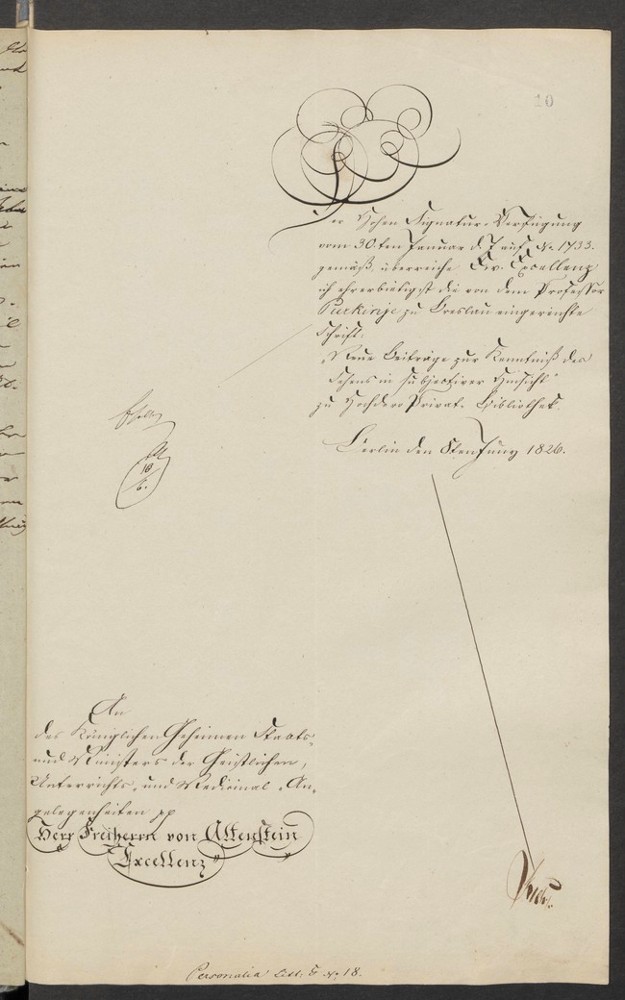 10
Der Hohen Signatur-Verfügung
vom 30.ten Januar d. J. auf No. 1733.
gemäß, überreiche Ew. Excellenz
ich ehrerbietigst die von dem Professor
Purkinje zu Breslau eingereichte
Schrift:
„Neue Beiträge zur Kenntniß des
Sehens in subjectiver Hinsicht"
zu Hochdero Privat-Bibliothek.
Berlin den 8ten Juny 1826.
10
6.
An
des Königlichen Geheimen Staats-
und Ministers der Geistlichen,
Unterrichts- und Medicinal-An-
gelegenheiten pp
Herr Freiherrn von Altenstein
Excellenz
Personalia Litt: No 18.